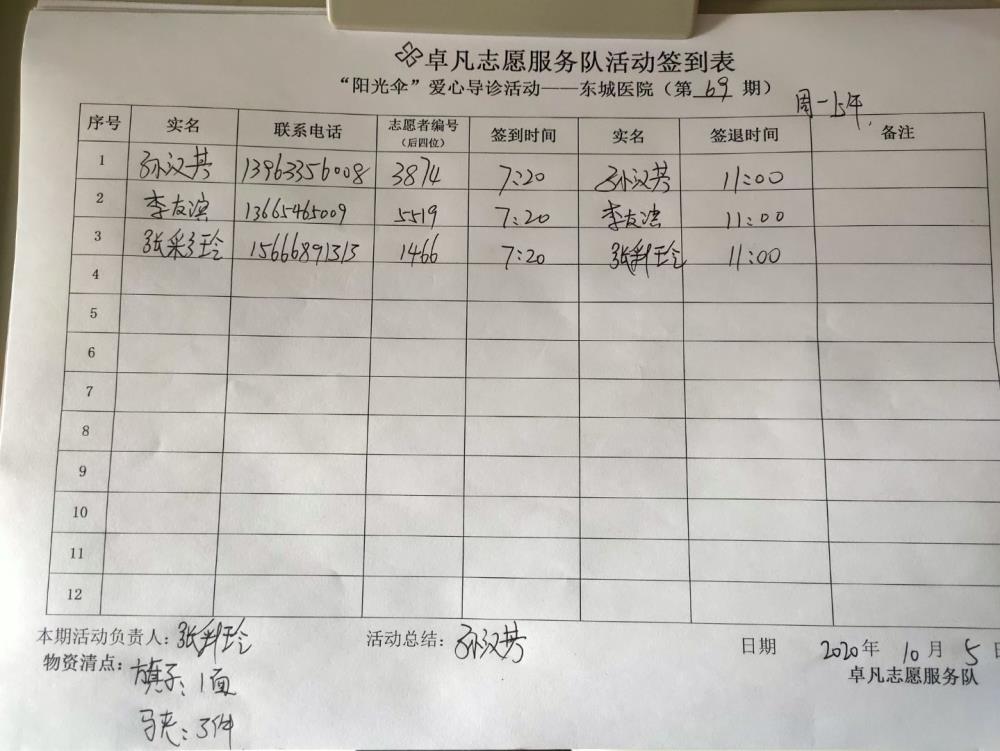 卓凡志愿服务队活动签到表
“阳光伞”爱心导诊活动——东城医院（第 69 期）
周一上午
序号 实名 联系电话 志愿者编号（后四位） 签到时间 实名 签退时间 备注
1 孙汉英 13963356008 3874 7:20 孙汉英 11:00
2 李友滨 13665465009 5519 7:20 李友滨 11:00
3 张彩玲 15666891313 1466 7:20 张彩玲 11:00
4
5
6
7
8
9
10
11
12
本期活动负责人：张彩玲 活动总结：孙汉英 日期 2020年 10月 5日
物资清点：旗子：1面 卓凡志愿服务队
马夹：3件